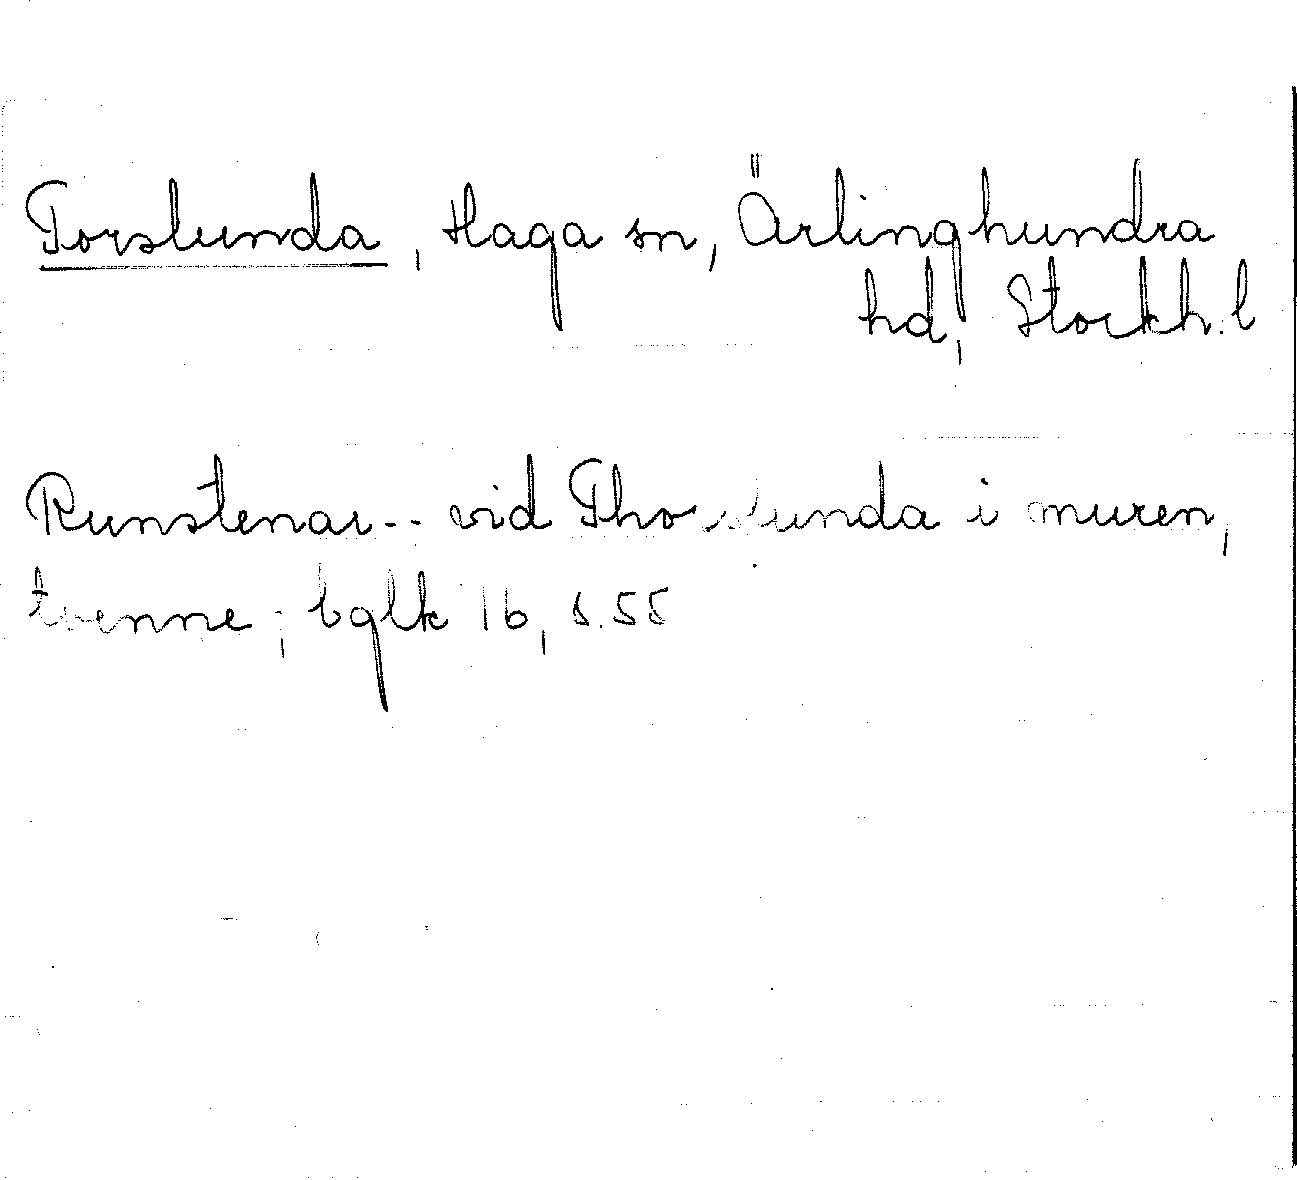 Torslunda, Haga sn, Ärlinghundra
hd, Stockh. l
Runstenar -- vid Thorslunda i muren,
tvenne; bglk 16, s. 55